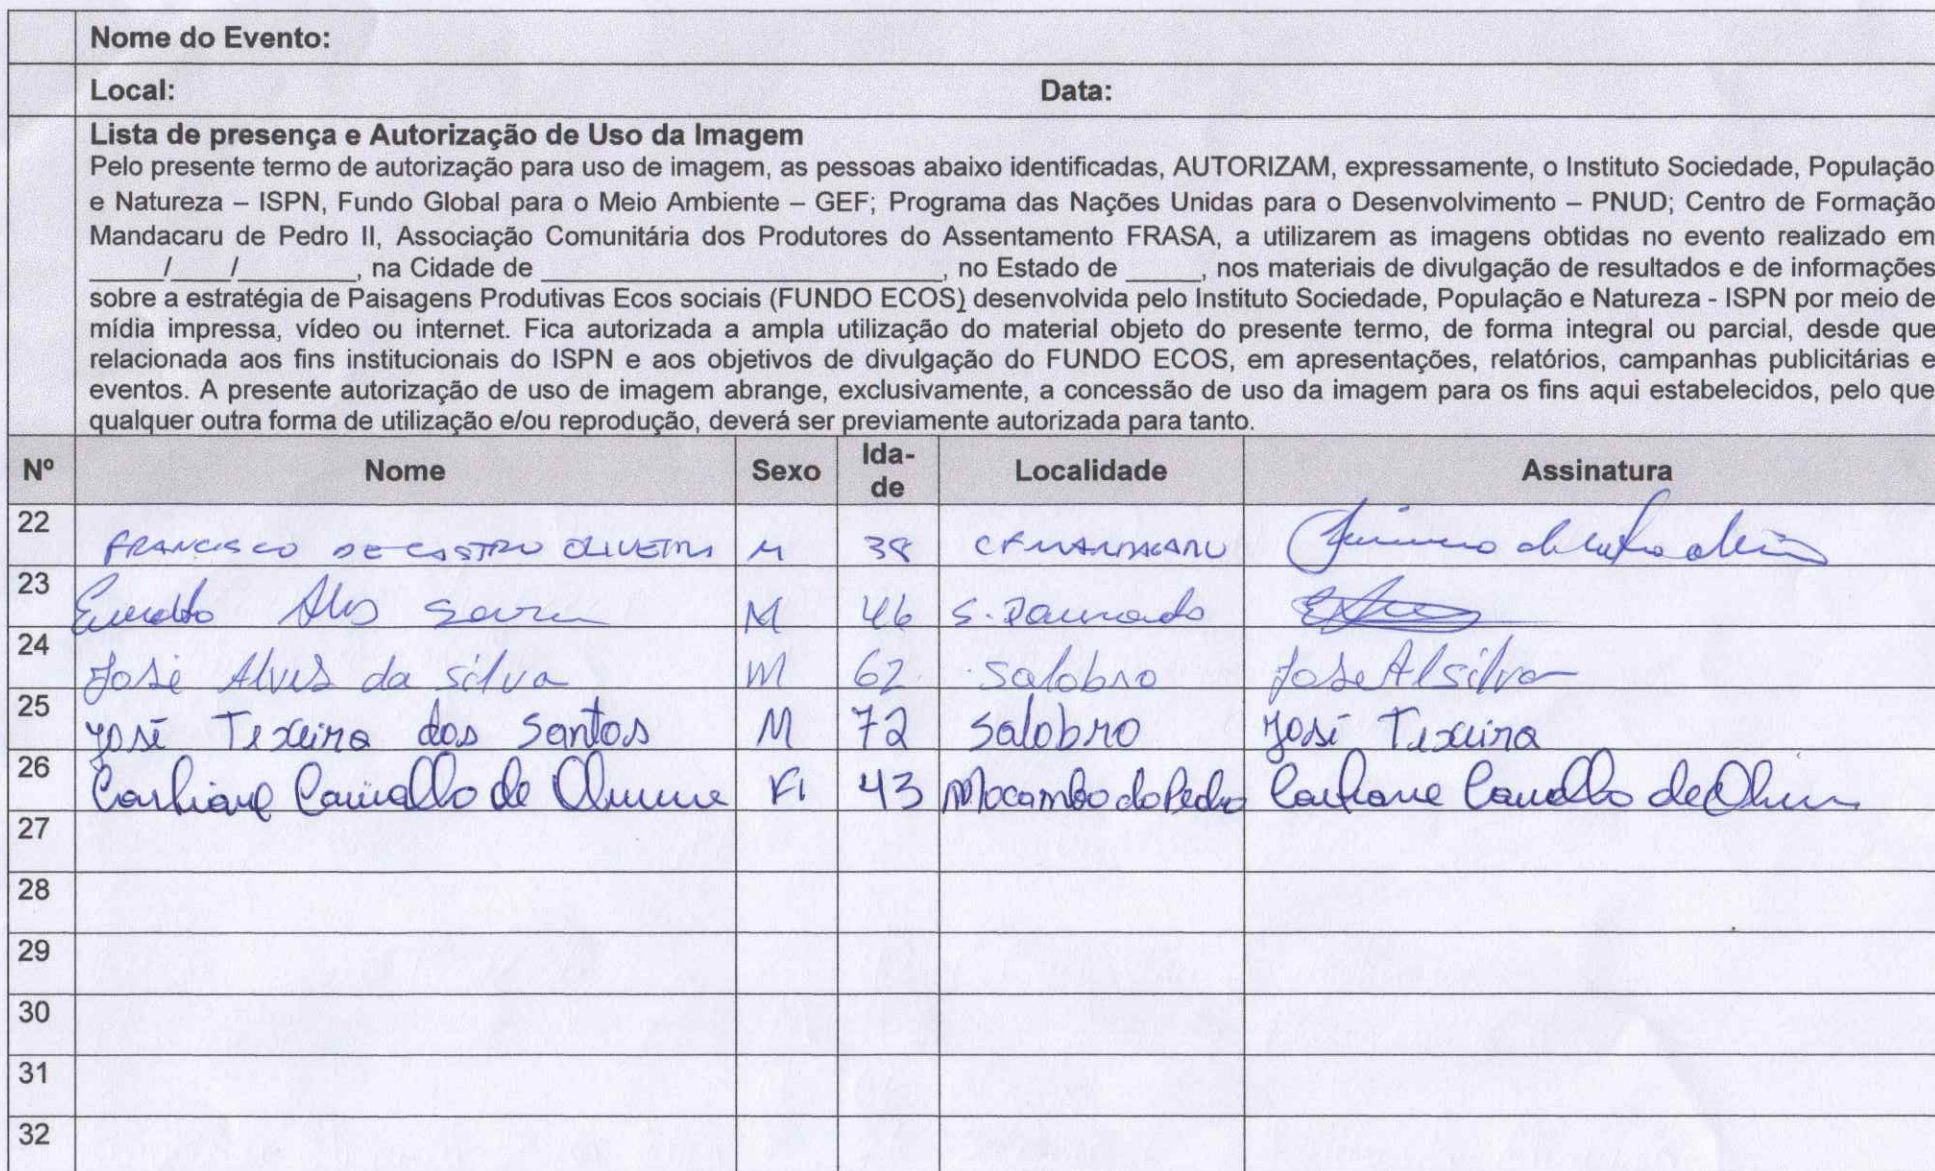 Nome do Evento:
Local: Data:
Lista de presença e Autorização de Uso da Imagem
Pelo presente termo de autorização para uso de imagem, as pessoas abaixo identificadas, AUTORIZAM, expressamente, o Instituto Sociedade, População
e Natureza – ISPN, Fundo Global para o Meio Ambiente – GEF; Programa das Nações Unidas para o Desenvolvimento – PNUD; Centro de Formação
Mandacaru de Pedro II, Associação Comunitária dos Produtores do Assentamento FRASA, a utilizarem as imagens obtidas no evento realizado em
_____/____/________, na Cidade de ___________________________, no Estado de _____, nos materiais de divulgação de resultados e de informações
sobre a estratégia de Paisagens Produtivas Ecos sociais (FUNDO ECOS) desenvolvida pelo Instituto Sociedade, População e Natureza - ISPN por meio de
mídia impressa, vídeo ou internet. Fica autorizada a ampla utilização do material objeto do presente termo, de forma integral ou parcial, desde que
relacionada aos fins institucionais do ISPN e aos objetivos de divulgação do FUNDO ECOS, em apresentações, relatórios, campanhas publicitárias e
eventos. A presente autorização de uso de imagem abrange, exclusivamente, a concessão de uso da imagem para os fins aqui estabelecidos, pelo que
qualquer outra forma de utilização e/ou reprodução, deverá ser previamente autorizada para tanto.
Nº Nome Sexo Ida-de Localidade Assinatura
22 FRANCISCO DE CASTRO OLIVEIRA M 38 CFMANDACARU
23 Alves M 46 S.
24 José Alves da silva M 62 Salobro José Al silva
25 José Texeira dos Santos M 72 Salobro José Texeira
26 Carvalho de 43 Mocambo do Pedro Carvalho de
27
28
29
30
31
32